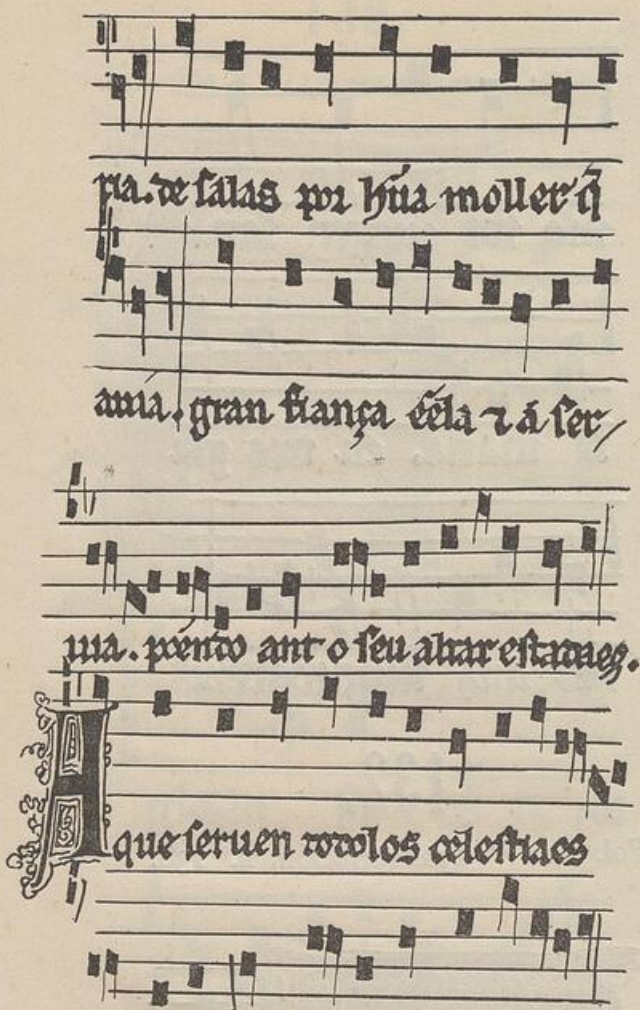 ria. de salas por hũa moller q̃
auia. gran fiança ẽ ela ⁊ á ser
uia. põendo ant o seu altar estadaes.
A que seruen todolos celestiaes